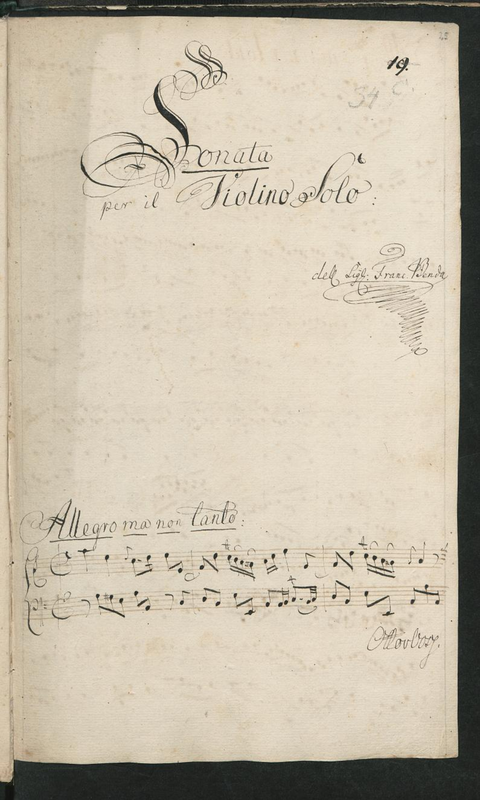 25
19.
34 C.
Sonata
per il Violino Solo:
dell Sigl: Franc: Benda
Allegro ma non tanto: